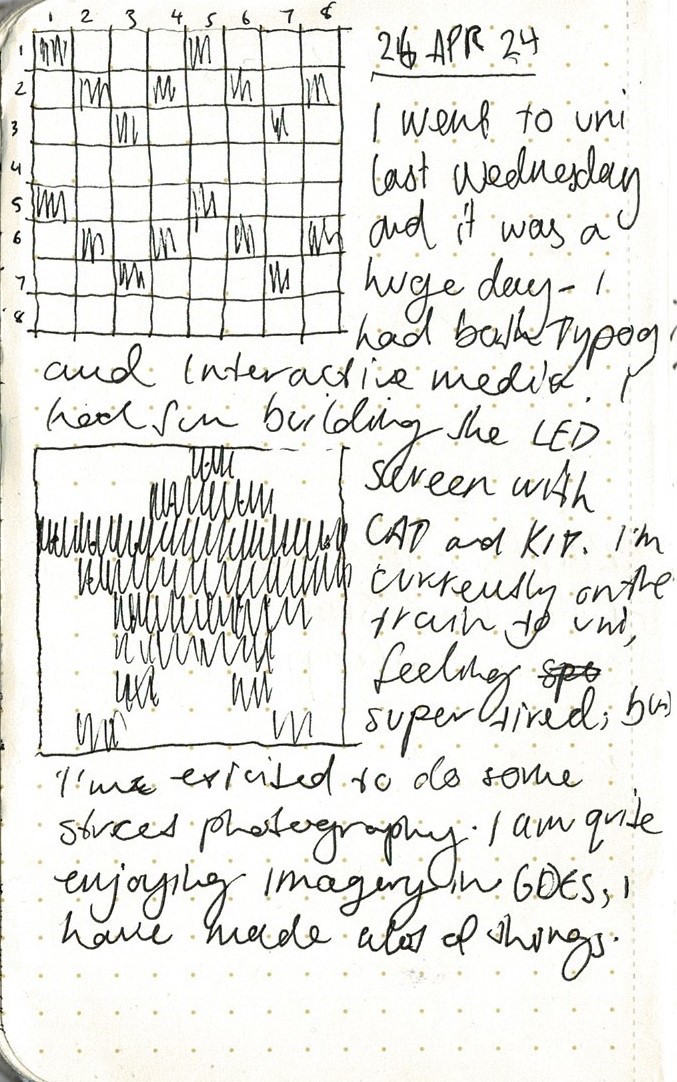 1 2 3 4 5 6 7 8
1
2
3
4
5
6
7
8
26 APR 24
I went to uni
last Wednesday
and it was a
huge day - I
had both Typog
and Interactive media. I
had fun building the LED
screen with
CAD and KIT. I'm
currently on the
train to uni,
feeling spo
super tired, but
I'm excited to do some
street photography. I am quite
enjoying Imagery in GDES, I
have made alot of things.